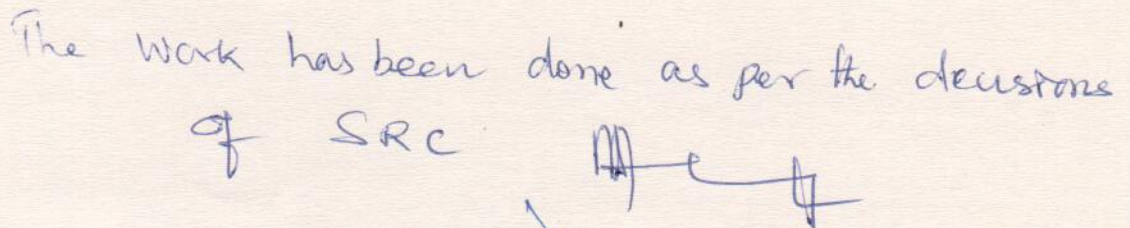 The work has been done as per the decisions
of SRC